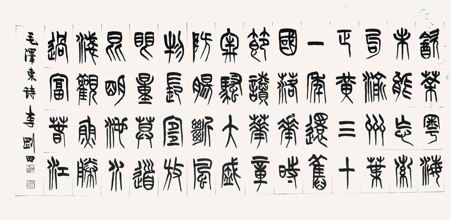 飲茶粵海
未能忘索
句渝州葉
正黃三十
一年還舊
國落華時
節讀華章
牢騷大盛
防腸斷風
物長宜放
眼量莫道
昆明池水
淺觀魚勝
過富春江
毛澤東詩 李